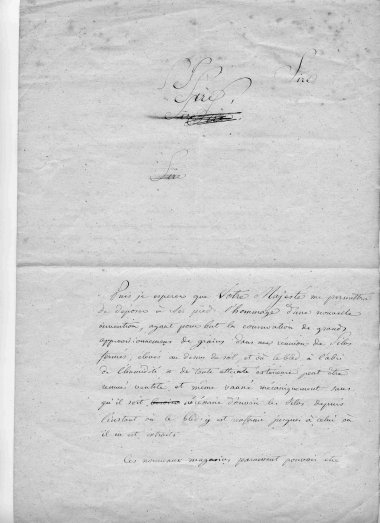 Sire
Sire
Sire
Puis je esperer que Votre Majesté me permettra
de deposer à ses pied l'hommage d'une nouvelle
invention, ayant pour but la conservation de grands
approvisionnements de grains dans une reunion de Silos
fermés, élevés au dessus du sol et où le bled à l'abri
de l'humidité & de toute attaque exterieure peut être
remué ventilé et même vanné mécaniquement sans
qu'il soit nécessaire d'ouvrir les Silos depuis
l'instant où le bled y est renfermé jusques à celui où
il en est extrait.
Ces nouveaux magasins paraissent pouvoir être